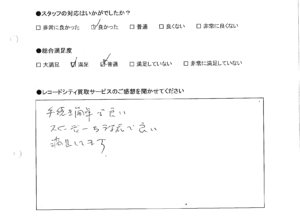 ●スタッフの対応はいかがでしたか？
□ 非常に良かった □ 良かった □ 普通 □ 良くない □ 非常に良くない
●総合満足度
□ 大満足 □ 満足 □ 普通 □ 満足していない □ 非常に満足していない
●レコードシティ買取サービスのご感想を聞かせてください
手続き簡単で良い
スピーディーで良い
満足してます